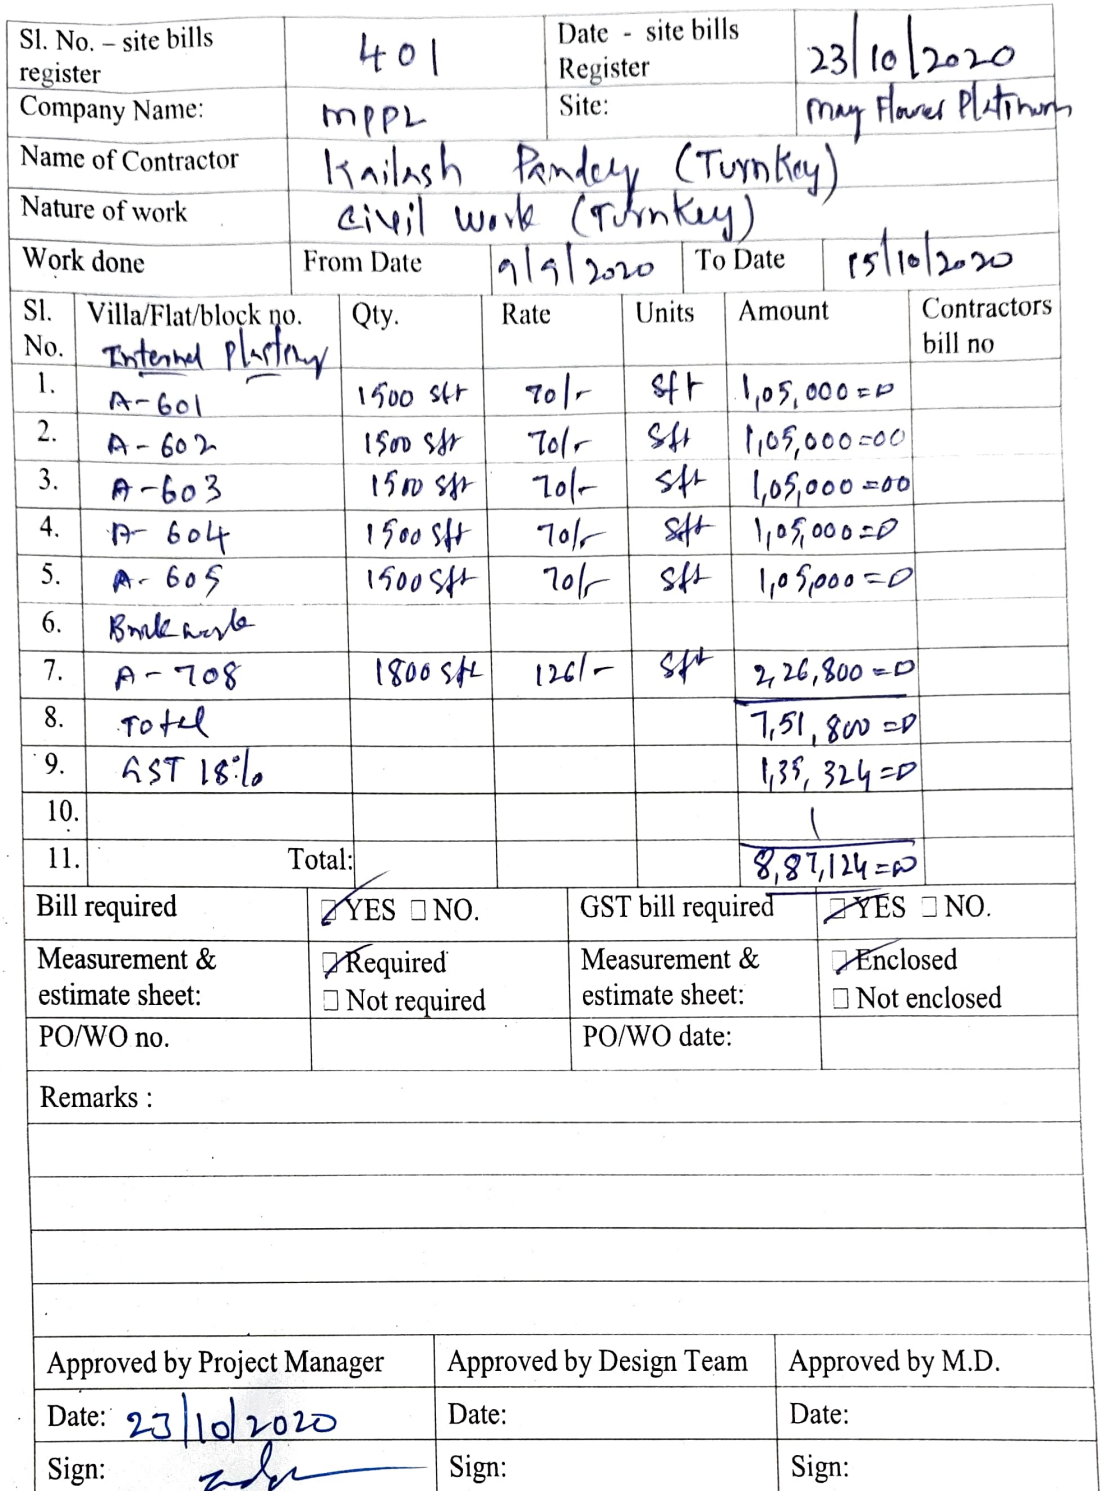 Sl. No. – site bills register 401 Date - site bills Register 23/10/2020
Company Name: MPPL Site: May Flower Platinum
Name of Contractor Kailash Pandey (Turnkey)
Nature of work Civil work (Turnkey)
Work done From Date 9/9/2020 To Date 15/10/2020
Sl. No. Villa/Flat/block no. Qty. Rate Units Amount Contractors bill no
Internal Plastring
1. A-601 1500 sft 70/- sft 1,05,000=0
2. A-602 1500 sft 70/- sft 1,05,000=00
3. A-603 1500 sft 70/- sft 1,05,000=00
4. A-604 1500 sft 70/- sft 1,05,000=0
5. A-605 1500 sft 70/- sft 1,05,000=0
6. Brick work
7. A-708 1800 sft 126/- sft 2,26,800=0
8. Total 7,51,800=0
9. GST 18% 1,35,324=0
10.
11. Total: 8,87,124=00
Bill required YES NO. GST bill required YES NO.
Measurement & estimate sheet: Required Measurement & estimate sheet: Enclosed
Not required Not enclosed
PO/WO no. PO/WO date:
Remarks :
Approved by Project Manager Approved by Design Team Approved by M.D.
Date: 23/10/2020 Date: Date:
Sign: Sign: Sign: